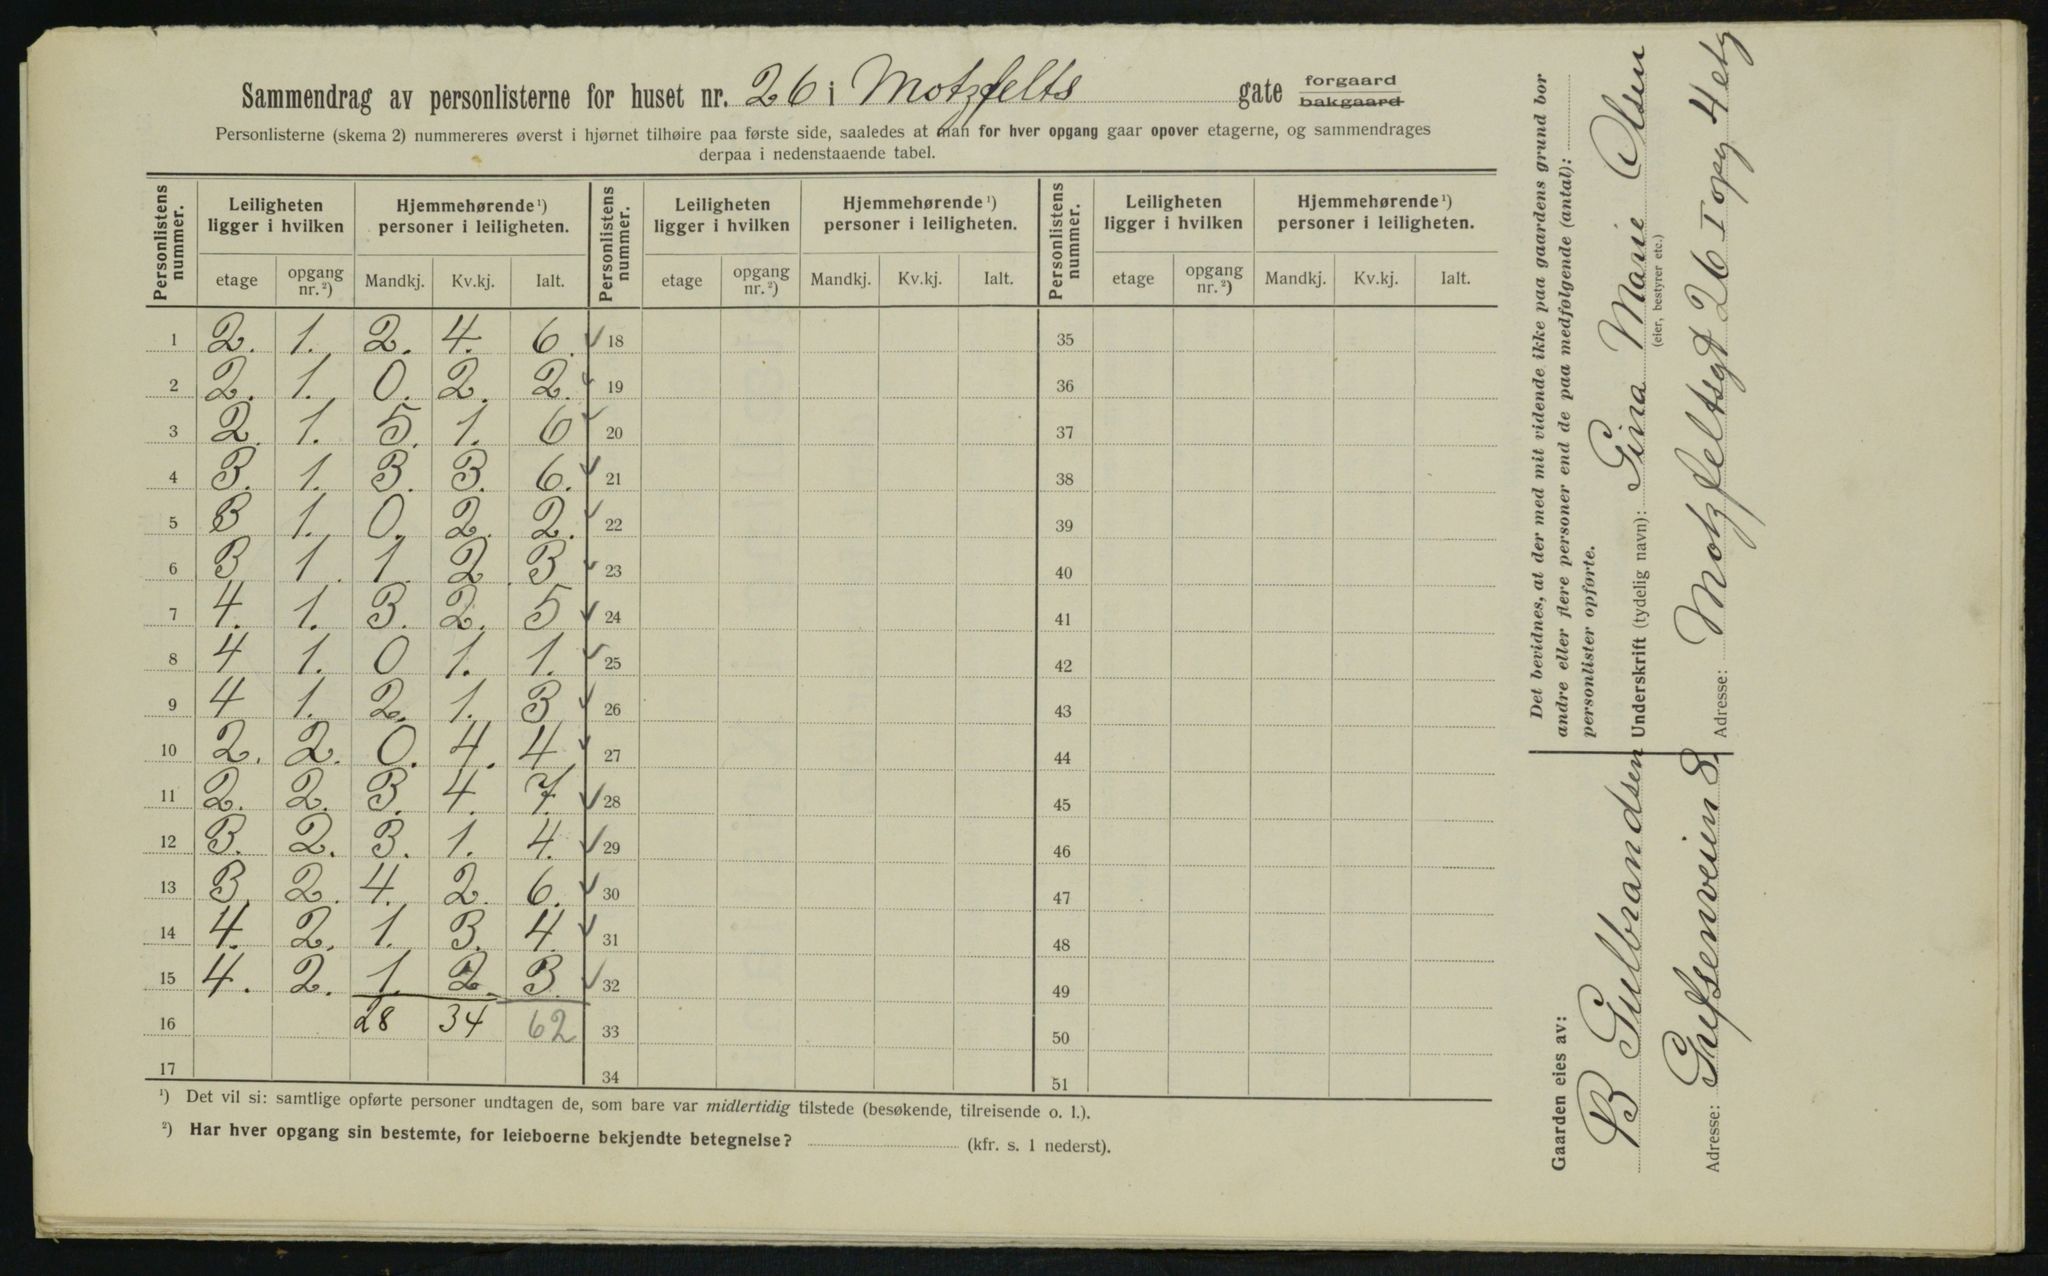 Sammendrag av personlisterne for huset nr. 26 i Motzfelts gate forgaard bakgaard
Personlisterne (skema 2) nummereres øverst i hjørnet tilhøire paa første side, saaledes at man for hver opgang gaar opover etagerne, og sammendrages
derpaa i nedenstaaende tabel.
Personlistens nummer. Leiligheten ligger i hvilken Hjemmehørende ¹) personer i leiligheten. Personlistens nummer. Leiligheten ligger i hvilken Hjemmehørende ¹) personer i leiligheten. Personlistens nummer. Leiligheten ligger i hvilken Hjemmehørende ¹) personer i leiligheten.
etage opgang nr. ²) Mandkj. Kv.kj. Ialt. etage opgang nr. ²) Mandkj. Kv.kj. Ialt. etage opgang nr. ²) Mandkj. Kv.kj. Ialt.
1 2. 1. 2. 4. 6. ✓ 18 35
2 2. 1. 0. 2. 2. ✓ 19 36
3 2. 1. 5. 1. 6 ✓ 20 37
4 3. 1. 3. 3. 6. ✓ 21 38
5 3 1. 0. 2. 2. ✓ 22 39
6 3 1. 1. 2. 3 ✓ 23 40
7 4. 1. 3. 2. 5 ✓ 24 41
8 4 1. 0 1. 1. ✓ 25 42
9 4 1. 2. 1. 3 ✓ 26 43
10 2. 2. 0. 4. 4. ✓ 27 44
11 2. 2. 3. 4. 7. ✓ 28 45
12 3. 2. 3. 1. 4. ✓ 29 46
13 3. 2. 4. 2. 6. ✓ 30 47
14 4. 2. 1. 3. 4. ✓ 31 48
15 4. 2. 1. 2. 3. ✓ 32 49
16 28 34 62 33 50
17 34 51
¹) Det vil si: samtlige opførte personer undtagen de, som bare var midlertidig tilstede (besøkende, tilreisende o. l.).
²) Har hver opgang sin bestemte, for leieboerne bekjendte betegnelse? (kfr. s. 1 nederst).
Det bevidnes, at der med mit vidende ikke paa gaardens grund bor
andre eller flere personer end de paa medfølgende (antal):
personlister opførte.
Underskrift (tydelig navn): Gina Marie Olsen
(eier, bestyrer etc.)
Adresse: Motzfeltsgt 26 I opg 4 etg
Gaarden eies av:
B Gulbrandsen
Adresse: Grefsenveien 8.